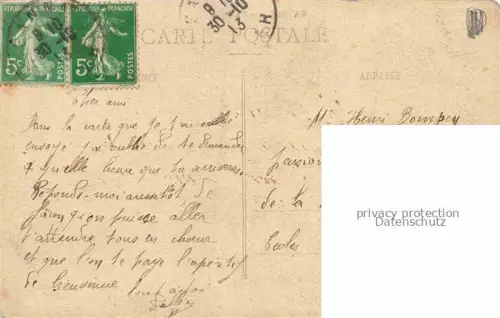 RÉPUBLIQUE FRANÇAISE RÉPUBLIQUE FRANÇAISE
5c POSTES 5c POSTES
30-10 13
CARTE POSTALE
ADRESSE
Cher ami
Dans la carte que je t'ai
envoyé j'ai oublié de te demander
a quelle heure que tu arriverais
Réponds-moi aussitôt
que l'on puisse aller
t'attendre tous en choeur
et que l'on te paye l'apéritif
de bienvenue
Mr Henri Pompey
de la
Ecoles
privacy protection
Datenschutz